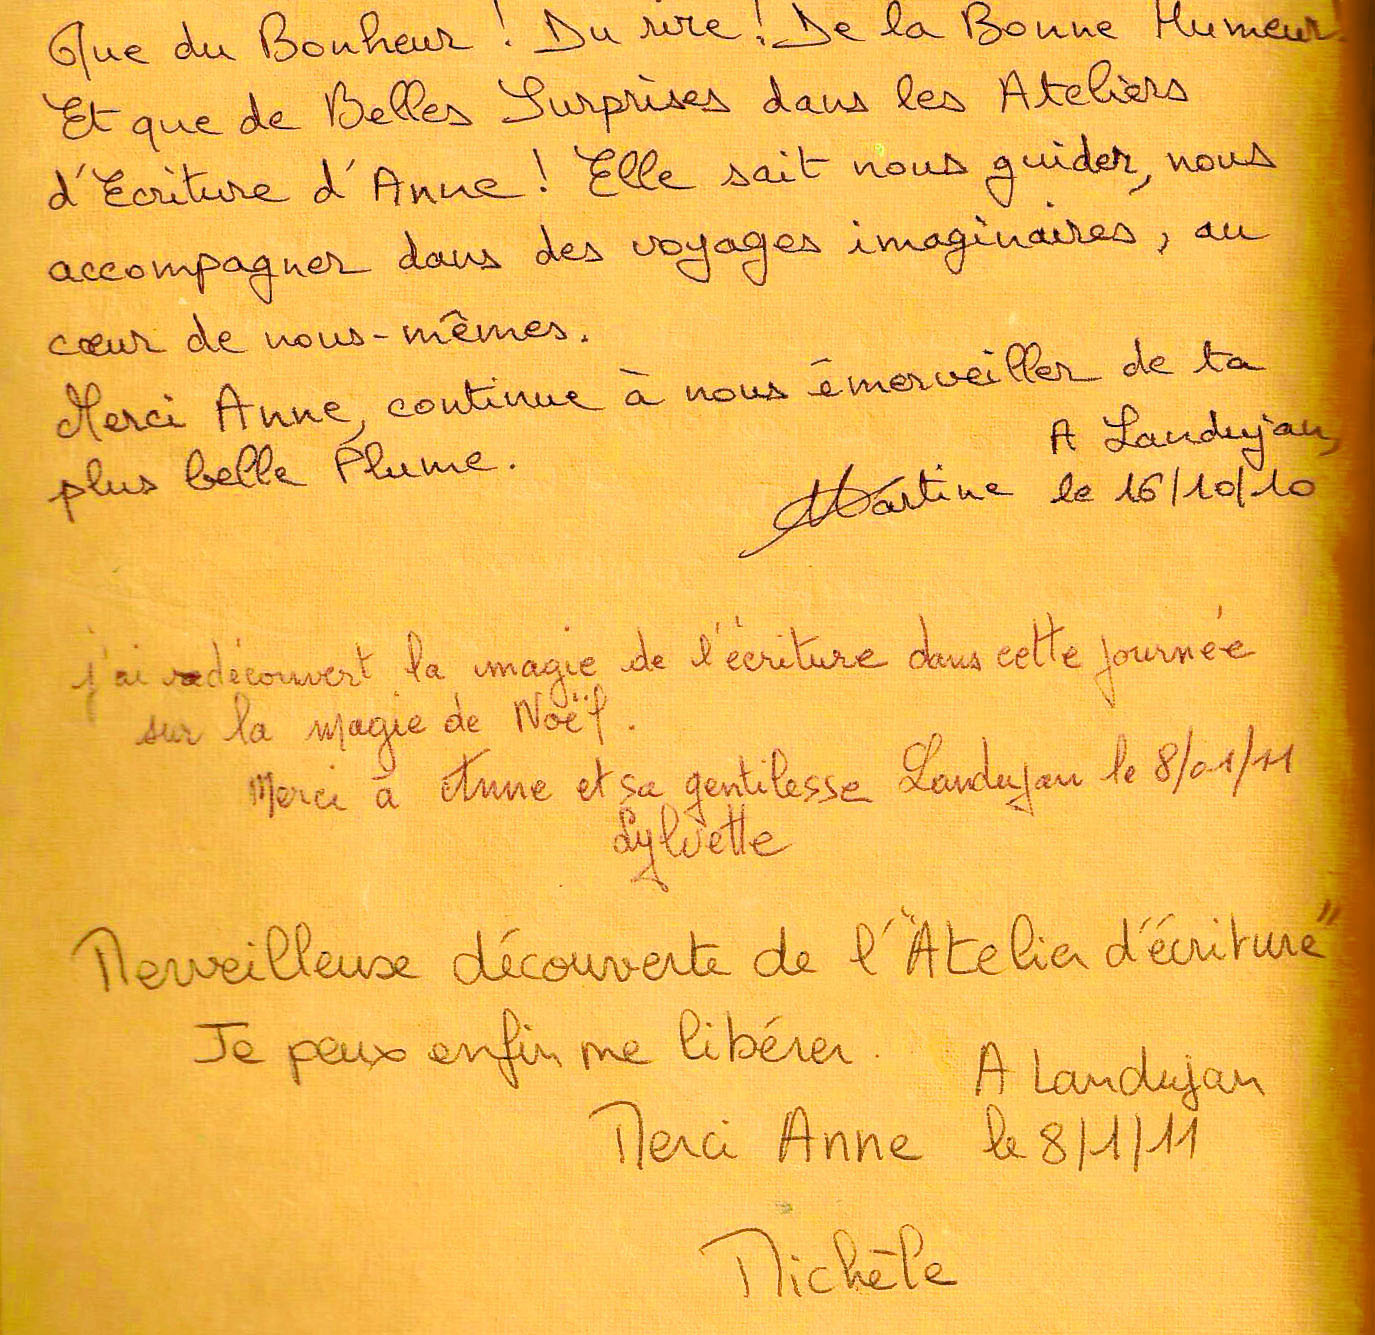 Que du Bonheur ! Du rire ! De la Bonne Humeur !
Et que de Belles Surprises dans les Ateliers
d'Ecriture d'Anne ! Elle sait nous guider, nous
accompagner dans des voyages imaginaires, au
cœur de nous-mêmes.
Merci Anne, continue à nous émerveiller de ta
plus belle Plume.
A Landujan,
Martine le 16/10/10
j'ai redécouvert la magie de l'écriture dans cette journée
sur la magie de Noël.
Merci à Anne et sa gentilesse Landujan le 8/01/11
Sylvette
Merveilleuse découverte de l'"Atelier d'écriture"
Je peux enfin me libérer.
A Landujan
Merci Anne le 8/1/11
Michèle